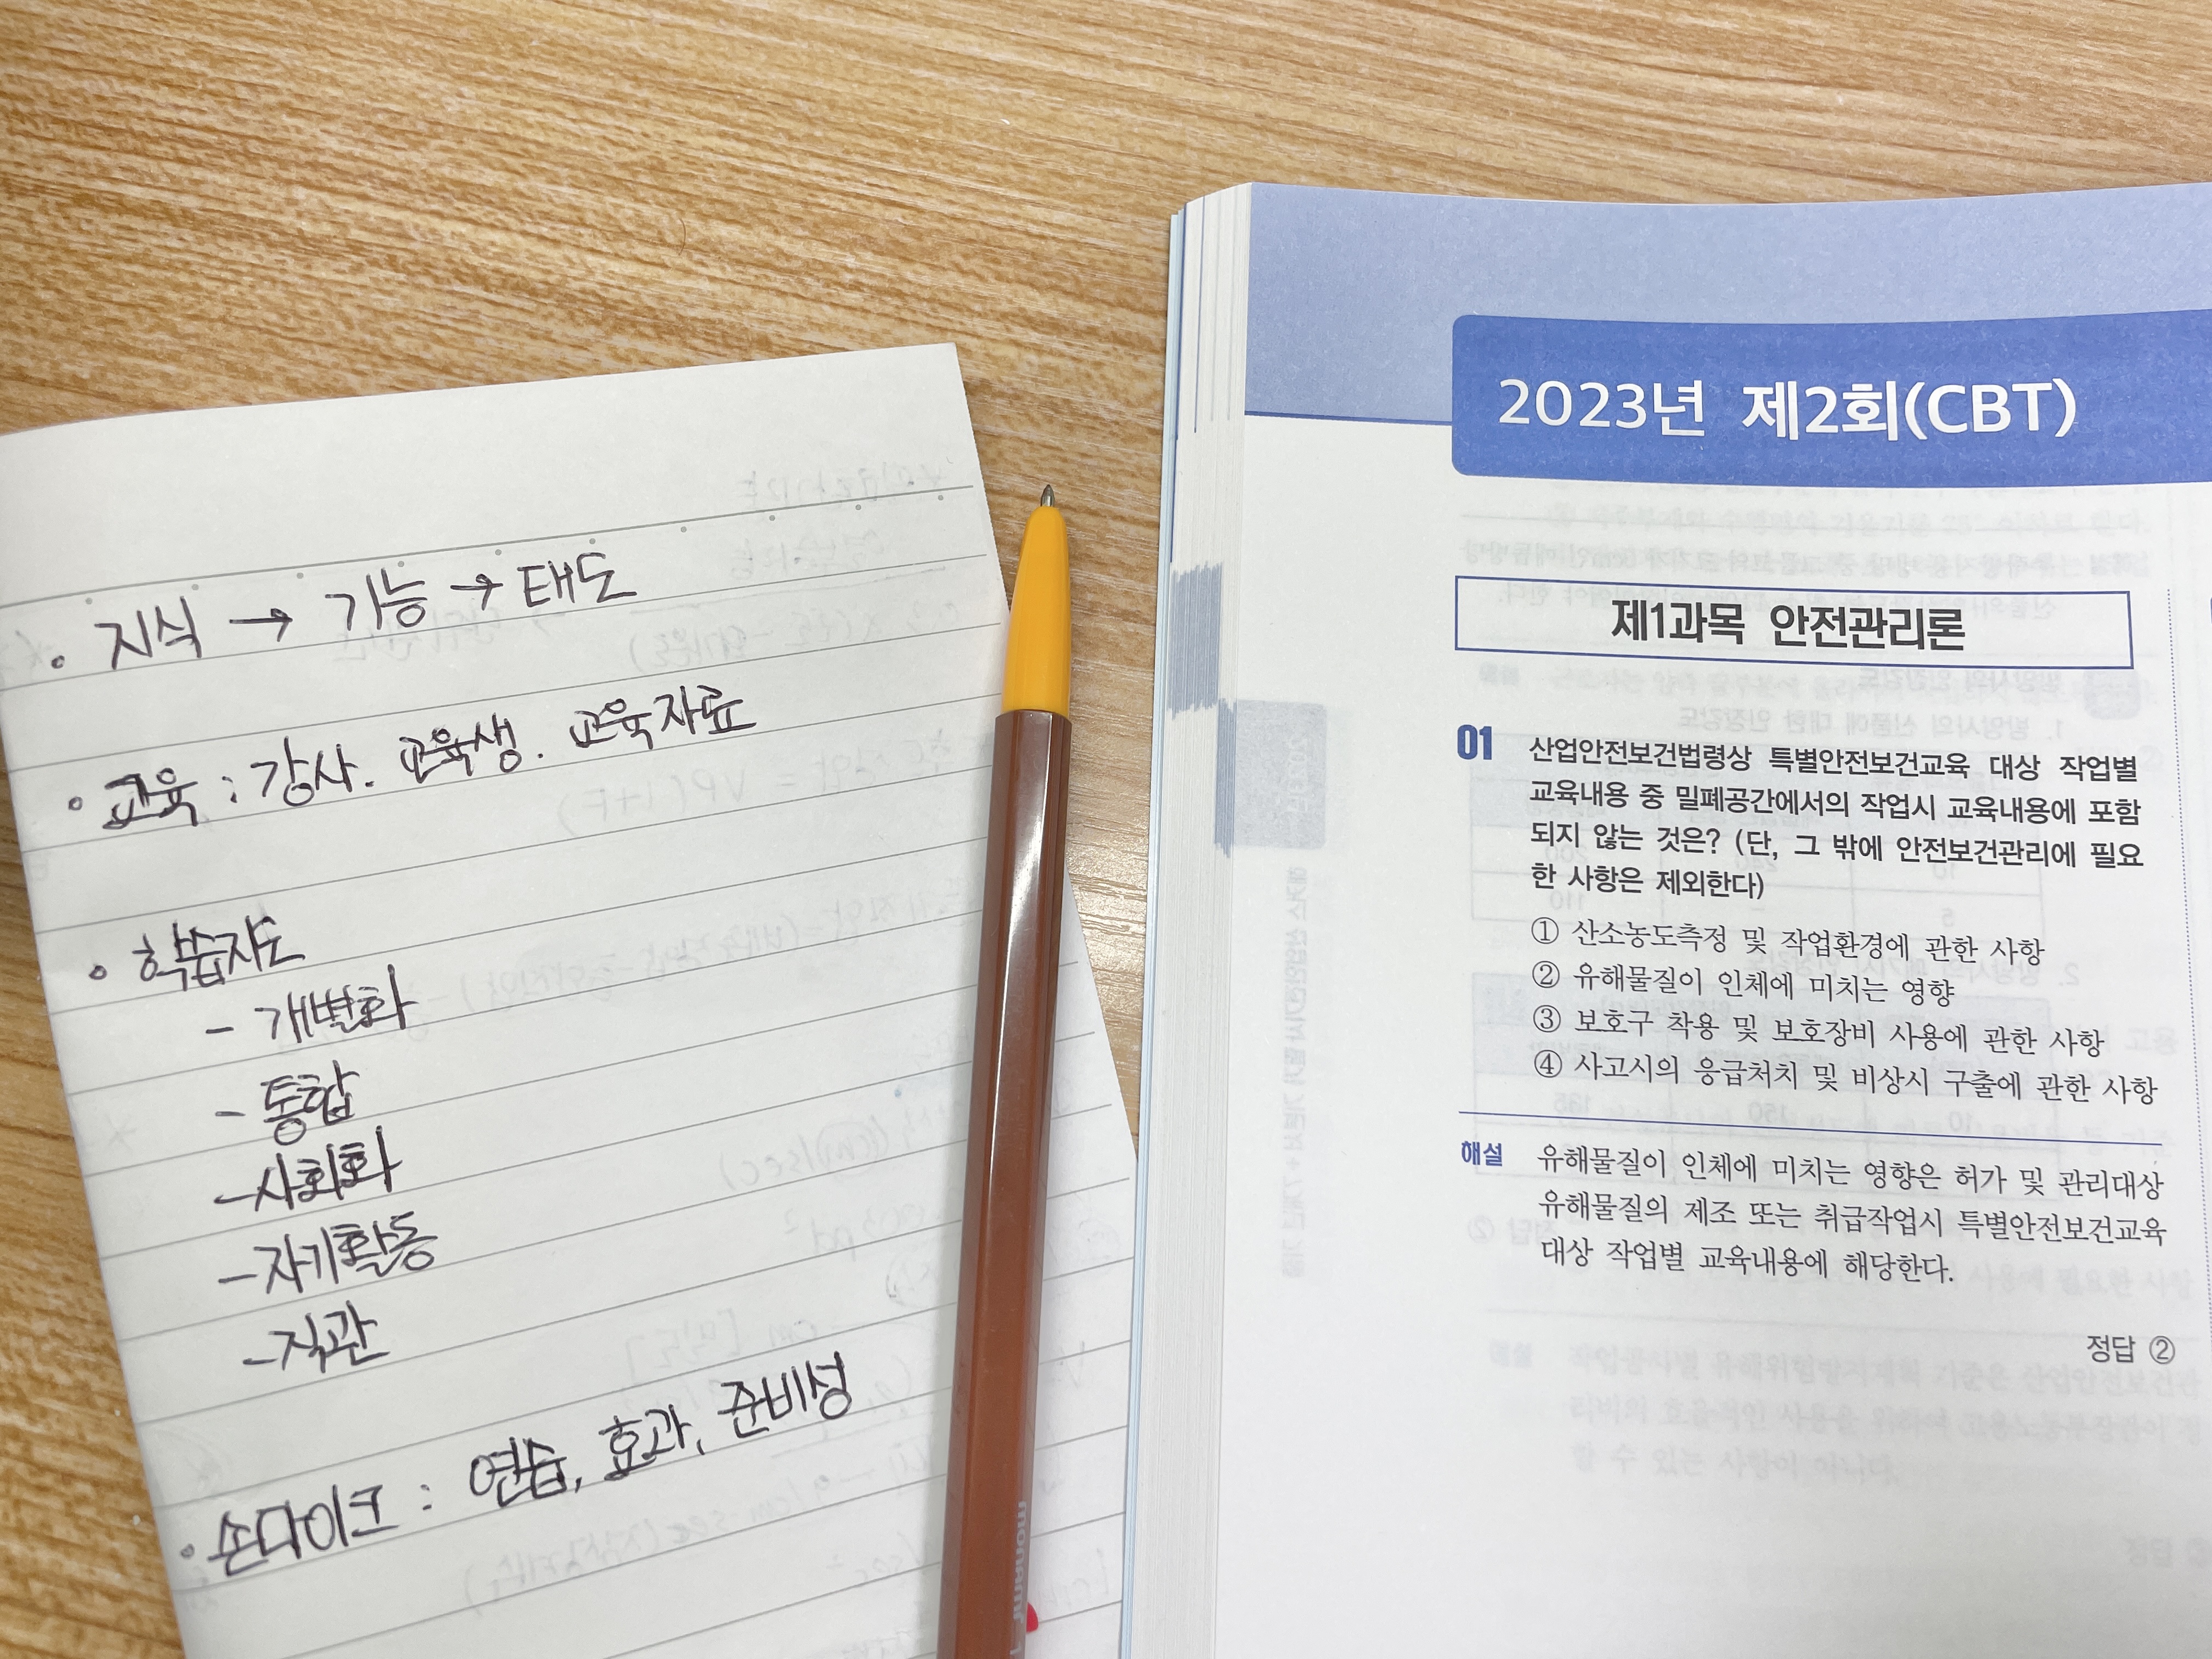 · 지식 → 기능 → 태도
· 교육 : 강사. 교육생. 교육자료
· 학습지도
- 개별화
- 통합
- 사회화
- 자기활동
- 직관
· 손다이크 : 연습, 효과, 준비성
monami
2023년 제2회(CBT)
제1과목 안전관리론
01 산업안전보건법령상 특별안전보건교육 대상 작업별
교육내용 중 밀폐공간에서의 작업시 교육내용에 포함
되지 않는 것은? (단, 그 밖에 안전보건관리에 필요
한 사항은 제외한다)
① 산소농도측정 및 작업환경에 관한 사항
② 유해물질이 인체에 미치는 영향
③ 보호구 착용 및 보호장비 사용에 관한 사항
④ 사고시의 응급처치 및 비상시 구출에 관한 사항
해설 유해물질이 인체에 미치는 영향은 허가 및 관리대상
유해물질의 제조 또는 취급작업시 특별안전보건교육
대상 작업별 교육내용에 해당한다.
정답 ②